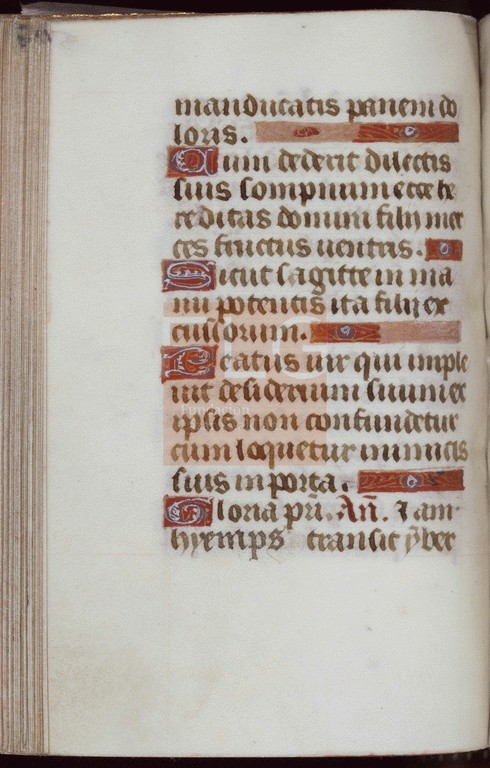 manducatis panem do
loris.
Cum dederit dilectis
suis sompnum ecce he
reditas domini filij mer
ces fructus uentris.
Sicut sagitte in ma
nu potentis ita filij ex
cussorum.
Beatus uir qui imple
uit desiderium suum ex
ipsis non confundetur
cum loquetur inimicis
suis in porta.
Gloria pri. An. Iam
hyemps transiit ymber
Fundación